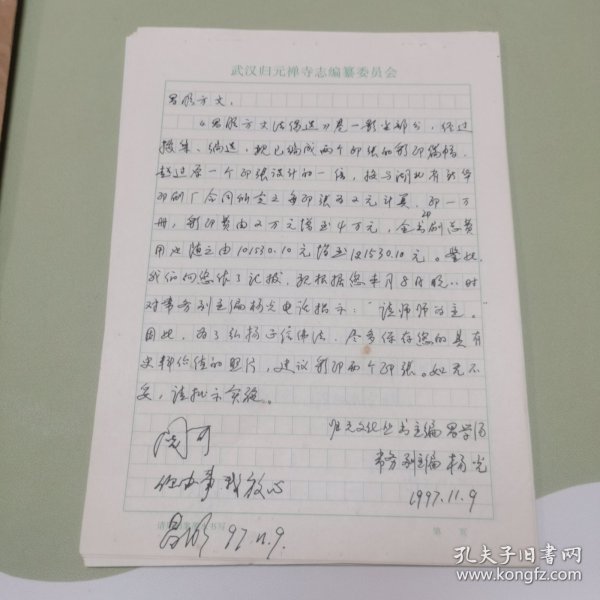 武汉归元禅寺志编纂委员会
昌明方丈：
《昌明方丈法缘选》是一影集部分，经过
搜集、编选，现已编成两个印张的彩印篇幅，
超过原一个印张设计的一倍，按与湖北省新华
印刷厂合同所定之每印张为2元计算，印一万
册，彩印费由2万元增至4万元，全书印刷总费
用也随之由101530.10元增至121530.10元。鉴此，
我们向您作了汇报，现根据您本月8日晚
对常务副主编杨光电话指示：“请师师
因此，为了弘扬正信佛法，尽多保存您的具有
史料价值的照片，建议彩印两个印张。如无不
妥，请批示实施。
归元文化丛书主编昌
常务副主编 杨光
1997.11.9
同可
你办事我放心
昌明 97.11.9.
第 页
孔夫子旧书网
www.kongfz.com